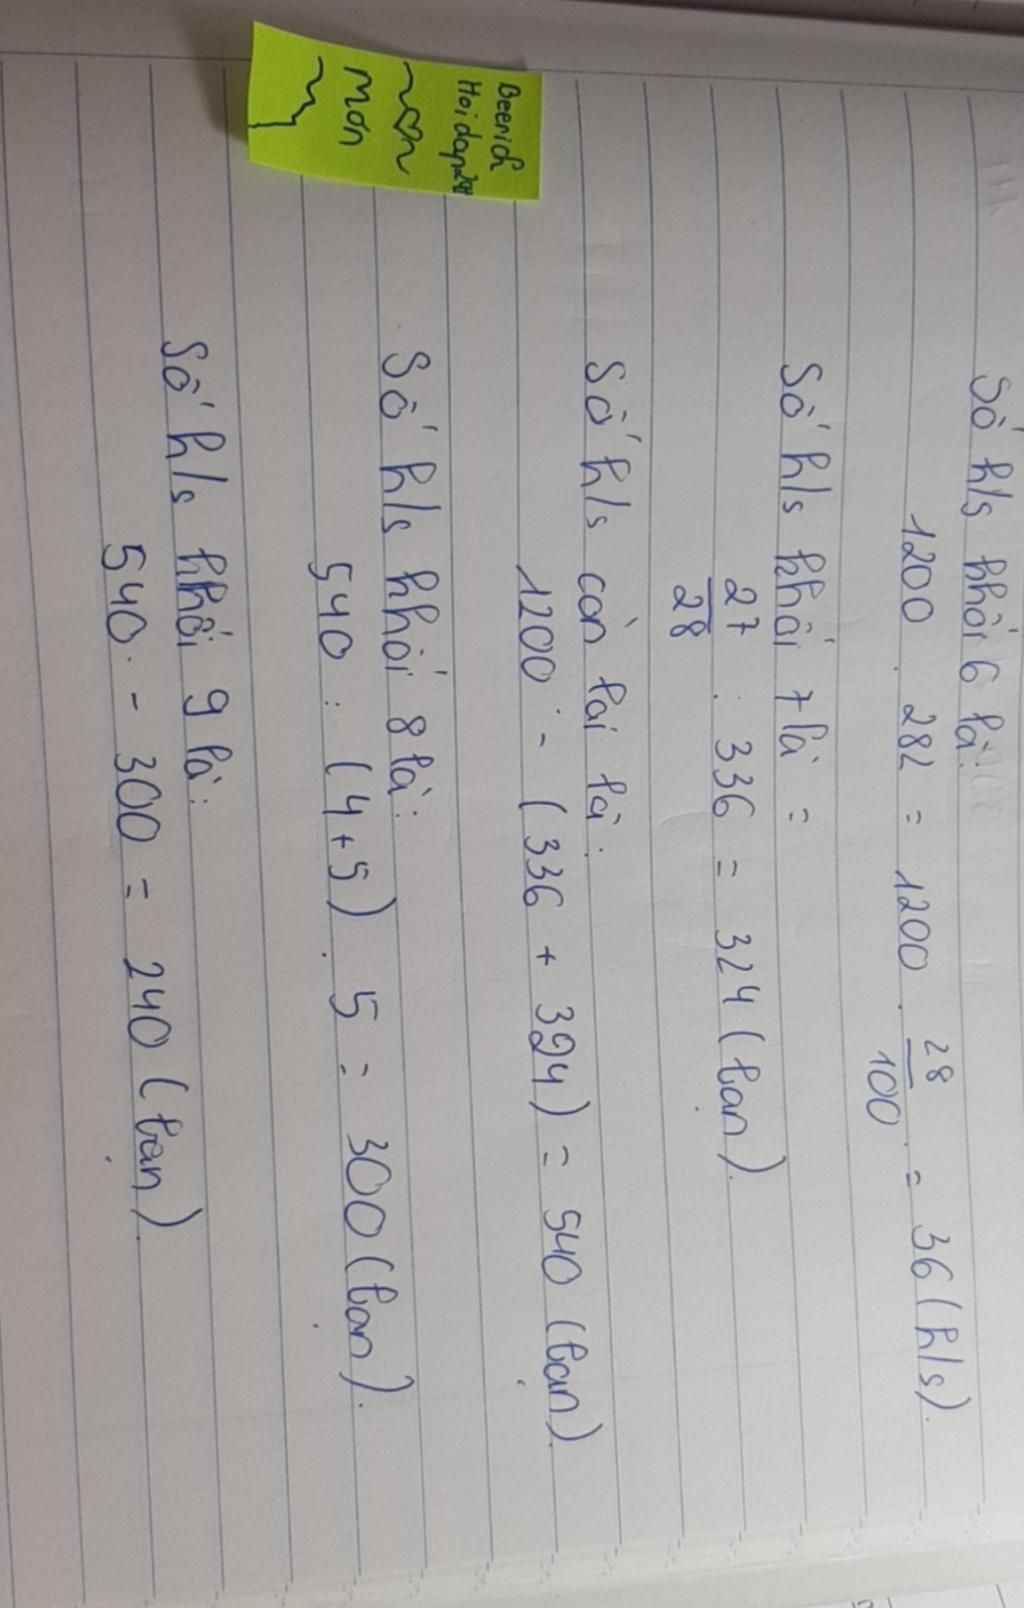 Số h/s khối 6 là:
1200 . 282 = 1200 . 28/100 = 36 (h/s).
Số h/s khối 7 là =
27/28 . 336 = 324 (bạn).
Số h/s còn lại là:
1200 - (336 + 324) = 540 (bạn).
Số h/s khối 8 là:
540 : (4+5) . 5 = 300 (bạn).
Số h/s khối 9 là:
540 - 300 = 240 (bạn).
Beerich
Hoidap247
Mơn